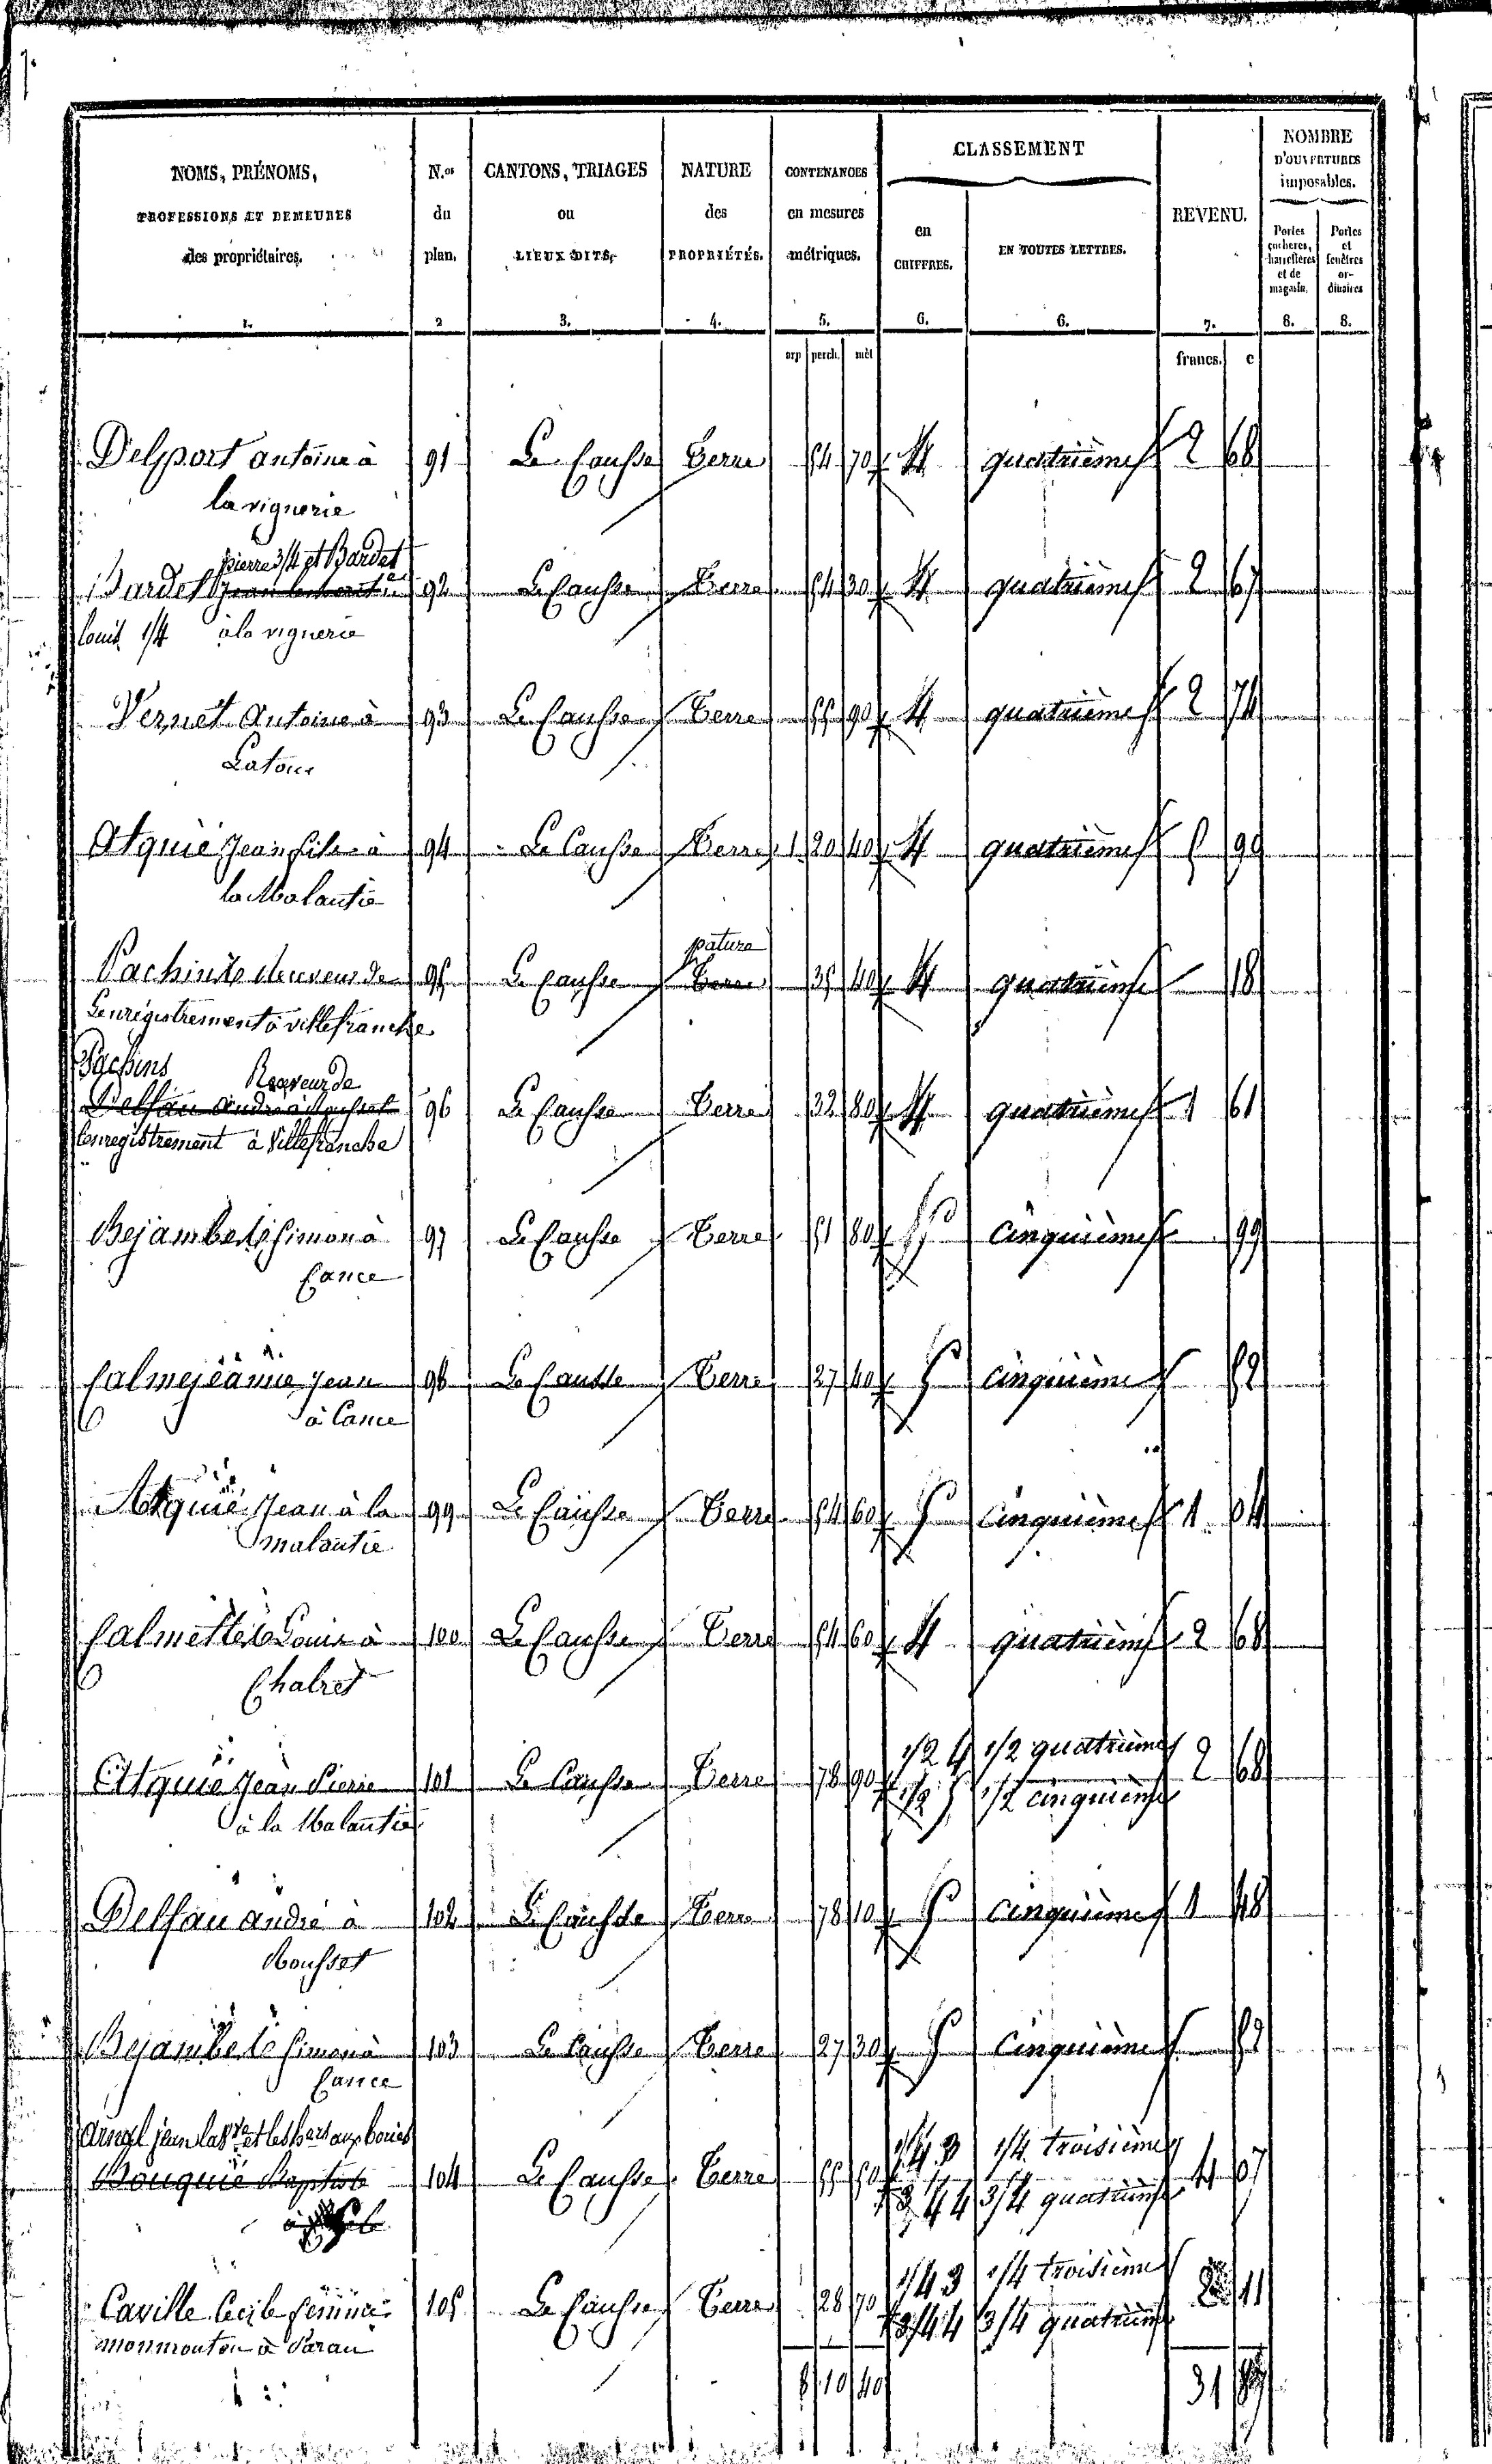 NOMS, PRÉNOMS,
PROFESSIONS ET DEMEURES
des propriétaires.
1.
N.os
du
plan.
2
CANTONS, TRIAGES
ou
LIEUX DITS,
3.
NATURE
des
PROPRIÉTÉS.
4.
CONTENANCES
en mesures
métriques.
5.
CLASSEMENT
en
CHIFFRES.
6.
EN TOUTES LETTRES.
6.
REVENU.
7.
NOMBRE
D'OUVERTURES
imposables.
Portes
cocheres,
charetières
et de
magasin,
8.
Portes
et
fenêtres
or-
dinaires
8.
arp perch. mèt
francs. c
Delport antoine à 91 Le Causse Terre 54 70 4 quatrième 2 68
la vignerie
pierre 3/4 et Bardet
Bardet 92 Le Causse Terre 54 30 4 quatrième 2 67
louis 1/4 à la vignerie
Vernet Antoine à 93 Le Causse Terre 55 90 4 quatrième 2 74
Latour
Atquié Jean fils à 94 Le Causse Terre 1 20 40 4 quatrième 5 90
la Malautie
pature
Pachins 95 Le Causse Terre 35 40 4 quatrième 18
Lenrégistrement à villefranche
Pachins Receveur de
Delfau andré à Mousset 96 Le Causse Terre 32 80 4 quatrième 1 61
lenregistrement à Villefranche
Bejambes Simon à 97 Le Causse Terre 51 80 5 cinquième 99
Cance
Calmejeanne Jean 98 Le Causse Terre 27 40 5 cinquième 52
à Cance
Atquié Jean à la 99 Le Causse Terre 54 60 5 cinquième 1 04
malautie
Calmettes Louis à 100 Le Causse Terre 54 60 4 quatrième 2 68
Chalret
Atquié Jean Pierre 101 Le Causse Terre 78 90 1/2 4 1/2 quatrième 2 68
à la Malautie 1/2 5 1/2 cinquième
Delfau andré à 102 Le Causse Terre 78 10 5 cinquième 1 48
Mousset
Bejambes Simon à 103 Le Causse Terre 27 30 5 cinquième 52
Cance
jean et les aux bories
Bouquié Baptiste 104 Le Causse Terre 55 50 1/4 3 1/4 troisième 4 07
3/4 4 3/4 quatrième
Caville Cecile femme 105 Le Causse Terre 28 70 1/4 3 1/4 troisième 2 11
monmouton à Paran 3/4 4 3/4 quatrième
8 10 40 31